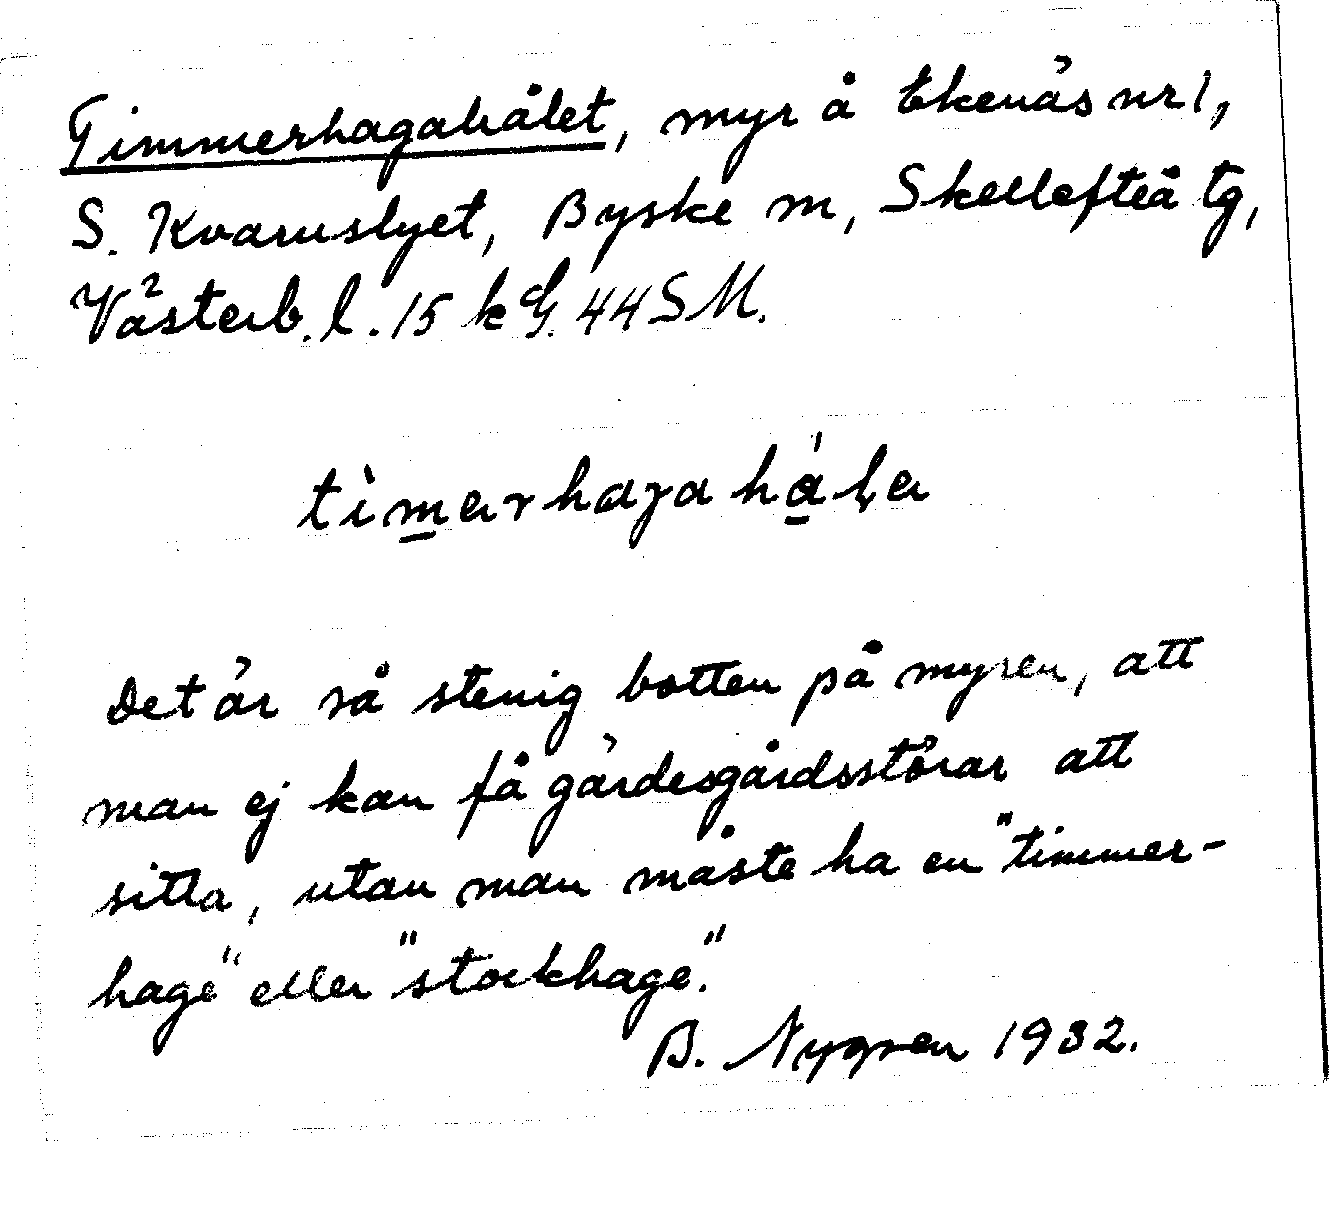 Timmerhagahålet, myr å Ekenäs nr 1,
S. Kvarnslyet, Byske sn, Skellefteå tg,
Västerb. l. 15 k G. 44 S M.
tìmarhagahálа
Det är så stenig botten på myren, att
man ej kan få gärdesgårdsstörar att
sitta, utan man måste ha en "timmer-
hage" eller "stockhage."
B. Nygren 1932.